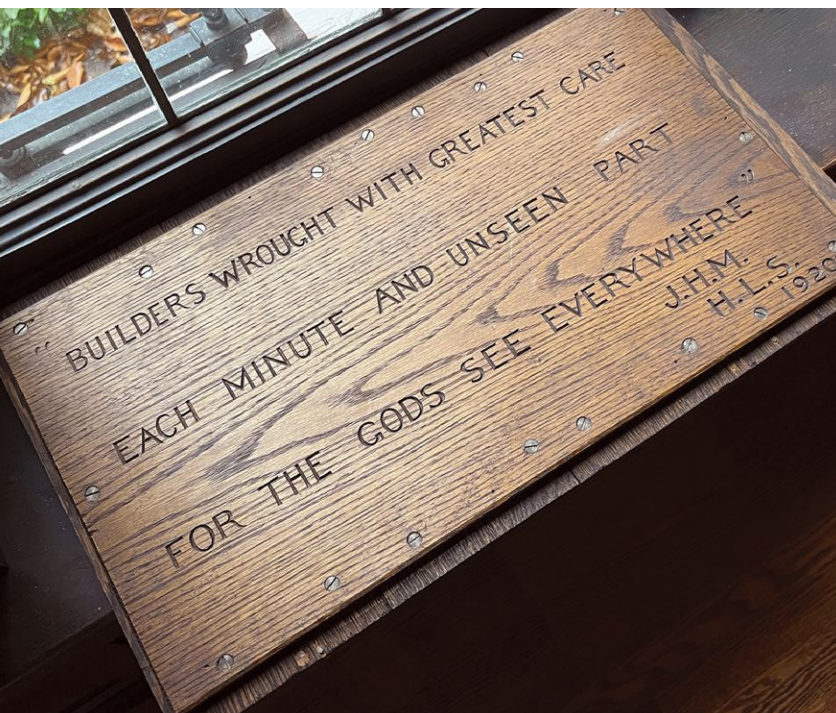 "BUILDERS WROUGHT WITH GREATEST CARE
EACH MINUTE AND UNSEEN PART
FOR THE GODS SEE EVERYWHERE"
J.H.M.
H.L.S.
1920